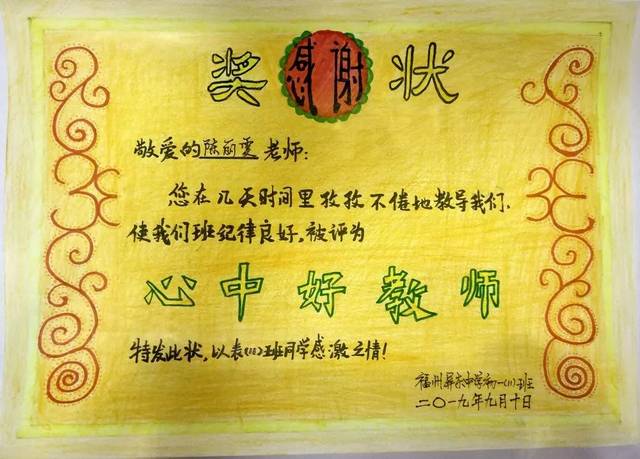 奖感谢状
敬爱的陈丽雯老师：
您在几天时间里孜孜不倦地教导我们，
使我们班纪律良好，被评为
心中好教师
特发此状，以表(11)班同学感激之情！
福州屏东中学初一(11)班
二〇一九年九月十日